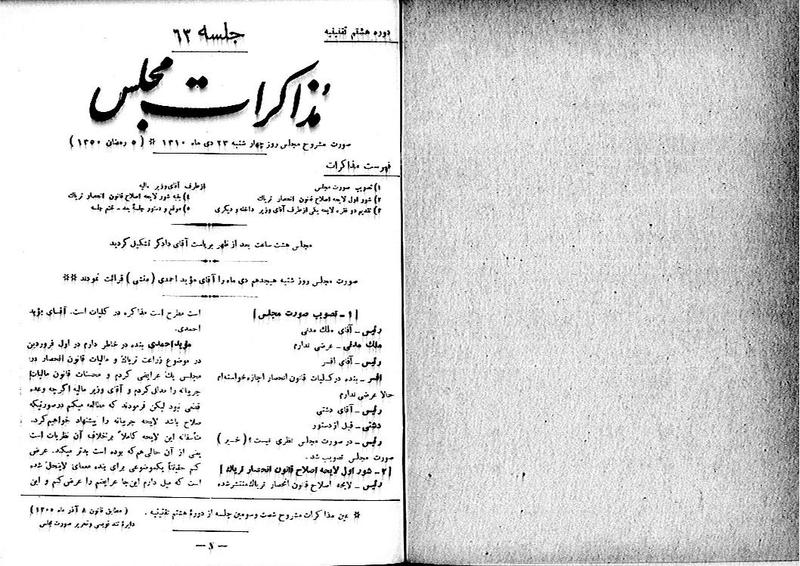 دوره هشتم تقنینیه
جلسه ۶۳
مذاکرات مجلس
صورت مشروح مجلس روز چهار شنبه ۲۳ دی ماه ۱۳۱۰ * ( ۵ رمضان ۱۳۵۰ )
فهرست مذاکرات
۱) تصویب صورت مجلس
۲) شور اول لایحه اصلاح قانون انحصار تریاک
۳) تقدیم دو فقره لایحه یکی ازطرف آقای وزیر داخله و دیگری
ازطرف آقای وزیر مالیه
۴) بقیه شور لایحه اصلاح قانون انحصار تریاک
۵) موقع و دستور جلسهٔ بعد - ختم جلسه
مجلس هشت ساعت بعد از ظهر بریاست آقای دادگر تشکیل گردید
صورت مجلس روز شنبه هیجدهم دی ماه را آقای مؤید احمدی ( منشی ) قرائت نمودند **
[ ۱ - تصویب صورت مجلس ]
رئیس - آقای ملک مدنی
ملک مدنی - عرضی ندارم
رئیس - آقای افسر
افسر - بنده درکلیات قانون انحصار اجازه خواسته‌ام
حالا عرضی ندارم
رئیس - آقای دشتی
دشتی - قبل از دستور
رئیس - در صورت مجلس نظری نیست ؟ ( خیر )
صورت مجلس تصویب شد .
[ ۲ - شور اول لایحه اصلاح قانون انحصار تریاک ]
رئیس - لایحه اصلاح قانون انحصار تریاک منتشر شده
است مطرح است مذاکره در کلیات است. آقای مؤید
احمدی.
مؤید احمدی - بنده در خاطر دارم در اول فروردین
در موضوع زراعت تریاک و مالیات قانون انحصار در
مجلس یک عرایضی کردم و محسنات قانون مالیات
جریبانه را مدلل کردم و آقای وزیر مالیه اگرچه وعده
قطعی نبود لیکن فرمودند که مطالعه میکنم درصورتیکه
صلاح باشد لایحه جریبانه را پیشنهاد خواهیم کرد.
متأسفانه این لایحه کاملاً برخلاف آن نظریات است
یعنی از آن حالی هم که بوده است بدتر میکند. عرض
کنم حقیقتاً یک موضوعی برای بنده معمای لاینحل شده
است که میل دارم این‌جا عرایضم را عرض کنم و این
* عین مذاکرات مشروح شصت وسومین جلسه از دورهٔ هشتم تقنینیه .
( مطابق قانون ۸ آذر ماه ۱۳۰۵ )
دایرهٔ تند نویسی و تحریر صورت مجلس
— ۱ —